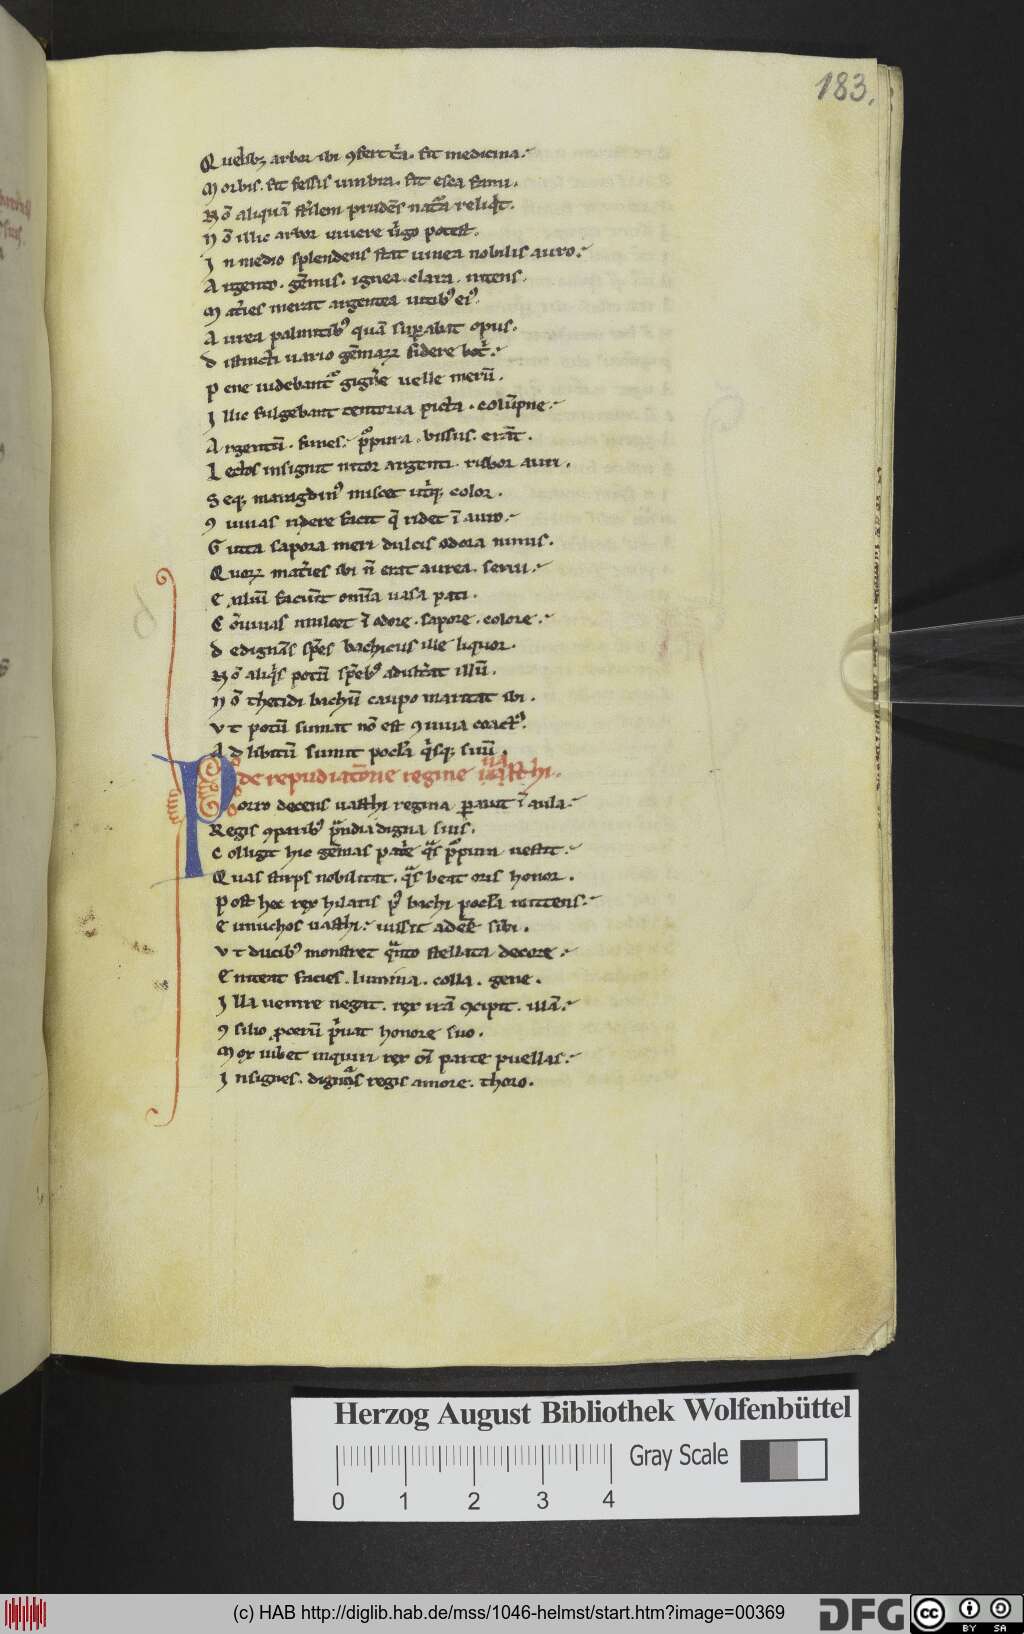 183.
Quelibꝫ arbor ibi ꝯfert tͥa. fit medicina.
Morbis. fit fessis umbra. fit esca fami.
Nō aliquā st'ilem prudēs nat͛a reliq͛t.
Nō illic arbor uiuere u͛go potest.
In medio splendens stat uinea nobilis auro.
Argento. gēmis. ignea. clara. nitens.
Mat͛ies merat argentea uitib᷒ ei᷒.
Aurea palmitib᷒ quā suꝑabat opus.
distincti uario gēmaꝝ sidere
Pene uidebant᷒ gign͛e uelle merū.
Illic fulgebant tentoria picta. colūpne.
Argentū. funes. p͛pura. bissus. erāt.
Lectos insignit nitor argenti. rubor auri.
Seqꝫ maragdin᷒ miscet ut͛qꝫ color.
ꝯ uiuas ridere facit q̄ ridet ī auro.
Gutta sapora meri dulcis odora nimis.
Quoꝝ mat͛ies ibi n̄ erat aurea. serui.
facīunt omīa uasa pati.
Cōuiuas mulcet ī odore. sapore. colore.
dedignās sp͛es bachicus ille liquor.
Nō aliq͛s potū sp͛eb᷒ adult͛at illū.
Nō thetidi bachū caupo maritat ibi.
Vt potū sumat nō est ꝯuiua coact᷒.
Ad libitū sumit pocl͛a q͛sqꝫ suū.
de repudiatōne regine uasthi.
Porro decens uasthi regina ꝑauit ī aula
Regis ꝯparib᷒ p͛ndia digna suis.
Colligit hic gēmas pat͛e q͛s p͛pura uestit.
Quas stirps nobilitat. q͛s beat oris honor.
Post hoc rex hilaris p᷒ bachi pocl͛a mittens.
Eunuchos uasthi. iussit adēe sibi.
Vt ducib᷒ monstret q͛nto stellata decore
Eniteat facies. lumina. colla. gene.
Illa uenire negat. rex irā ꝯcipit. illā.
ꝯsilio ꝓcerū p͛uat honore suo.
Mox iubet inquiri rex oī parte puellas.
Insignes. dignas regis amore. thoro.
Herzog August Bibliothek Wolfenbüttel
Gray Scale
0 1 2 3 4
(c) HAB http://diglib.hab.de/mss/1046-helmst/start.htm?image=00369
DFG
cc BY SA